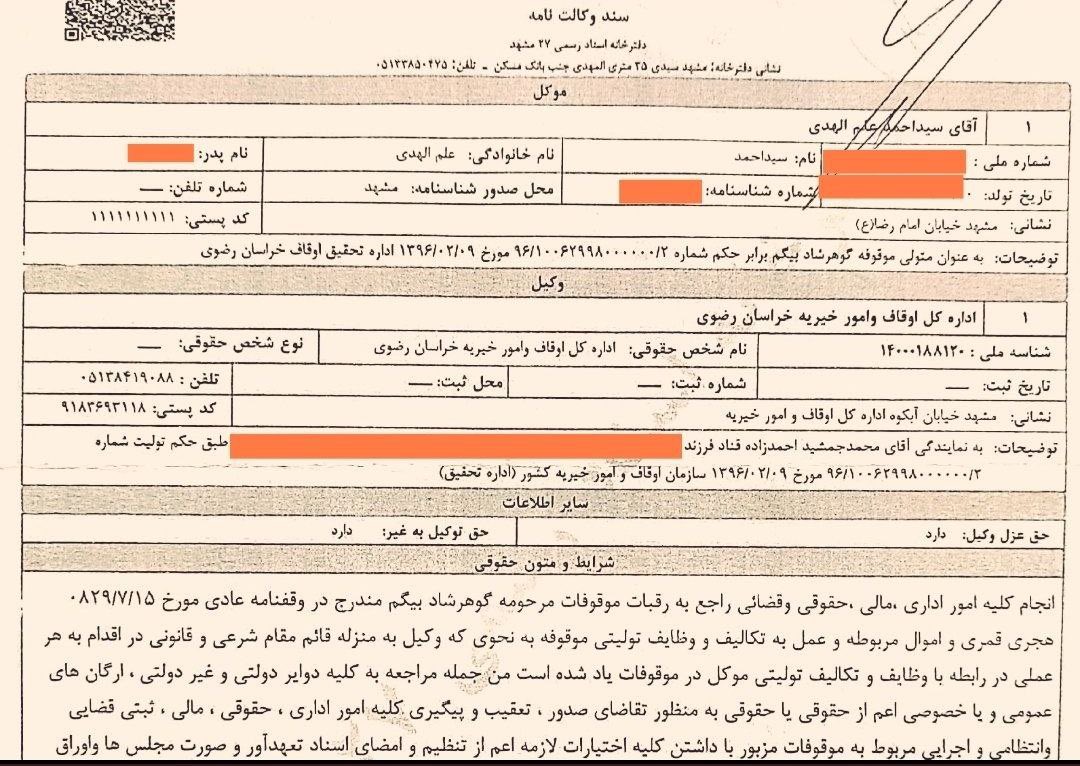 سند وکالت نامه
دفترخانه اسناد رسمی ۲۷ مشهد
نشانی دفترخانه: مشهد سیدی ۳۵ متری المهدی جنب بانک مسکن - تلفن: ۰۵۱۳۳۸۵۰۴۷۵
موکل
۱ آقای سیداحمد علم الهدی
شماره ملی : نام: سیداحمد نام خانوادگی: علم الهدی نام پدر:
تاریخ تولد: شماره شناسنامه: محل صدور شناسنامه: مشهد شماره تلفن: —
نشانی: مشهد خیابان امام رضا(ع) کد پستی: ۱۱۱۱۱۱۱۱۱۱
توضیحات: به عنوان متولی موقوفه گوهرشاد بیگم برابر حکم شماره ۹۶/۱۰۰۶۲۹۹۸۰۰۰۰۰۰۰/۲ مورخ ۱۳۹۶/۰۲/۰۹ اداره تحقیق اوقاف خراسان رضوی
وکیل
۱ اداره کل اوقاف وامور خیریه خراسان رضوی
شناسه ملی : ۱۴۰۰۰۱۸۸۱۲۰ نام شخص حقوقی: اداره کل اوقاف وامور خیریه خراسان رضوی نوع شخص حقوقی: —
تاریخ ثبت: — شماره ثبت: — محل ثبت: — تلفن : ۰۵۱۳۸۴۱۹۰۸۸
نشانی: مشهد خیابان آبکوه اداره کل اوقاف و امور خیریه کد پستی: ۹۱۸۳۶۹۳۱۱۸
توضیحات: به نمایندگی آقای محمدجمشید احمدزاده قناد فرزند طبق حکم تولیت شماره
۹۶/۱۰۰۶۲۹۹۸۰۰۰۰۰۰۰/۲ مورخ ۱۳۹۶/۰۲/۰۹ سازمان اوقاف و امور خیریه کشور (اداره تحقیق)
سایر اطلاعات
حق عزل وکیل: دارد حق توکیل به غیر: دارد
شرایط و متون حقوقی
انجام کلیه امور اداری ،مالی ،حقوقی وقضائی راجع به رقبات موقوفات مرحومه گوهرشاد بیگم مندرج در وقفنامه عادی مورخ ۰۸۲۹/۷/۱۵
هجری قمری و اموال مربوطه و عمل به تکالیف و وظایف تولیتی موقوفه به نحوی که وکیل به منزله قائم مقام شرعی و قانونی در اقدام به هر
عملی در رابطه با وظایف و تکالیف تولیتی موکل در موقوفات یاد شده است من جمله مراجعه به کلیه دوایر دولتی و غیر دولتی ، ارگان های
عمومی و یا خصوصی اعم از حقوقی یا حقوقی به منظور تقاضای صدور ، تعقیب و پیگیری کلیه امور اداری ، حقوقی ، مالی ، ثبتی قضایی
وانتظامی و اجرایی مربوط به موقوفات مزبور با داشتن کلیه اختیارات لازمه اعم از تنظیم و امضای اسناد تعهدآور و صورت مجلس ها واوراق